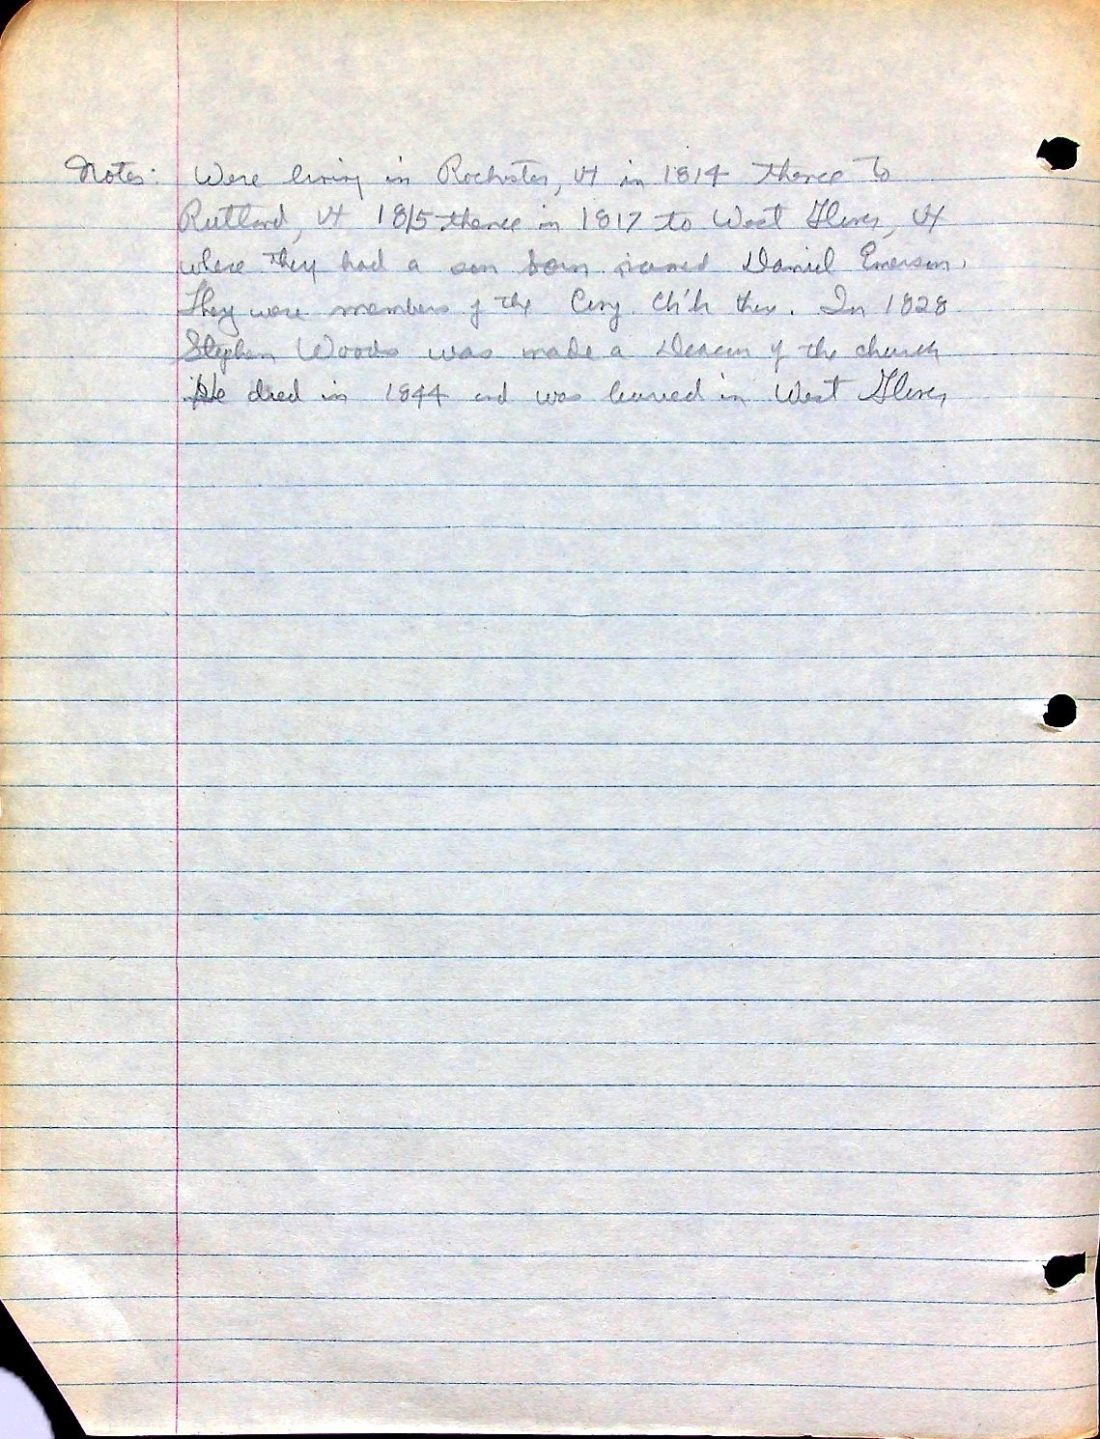 Notes: Were living in Rochester, Vt in 1814 thence to
Rutland, Vt 1815 thence in 1817 to West Glover, Vt
where they had a son born named Daniel Emerson.
They were members of the Cong. Ch'h there. In 1828
Stephen Woods was made a Deacon of the church
He died in 1844 and was buried in West Glover